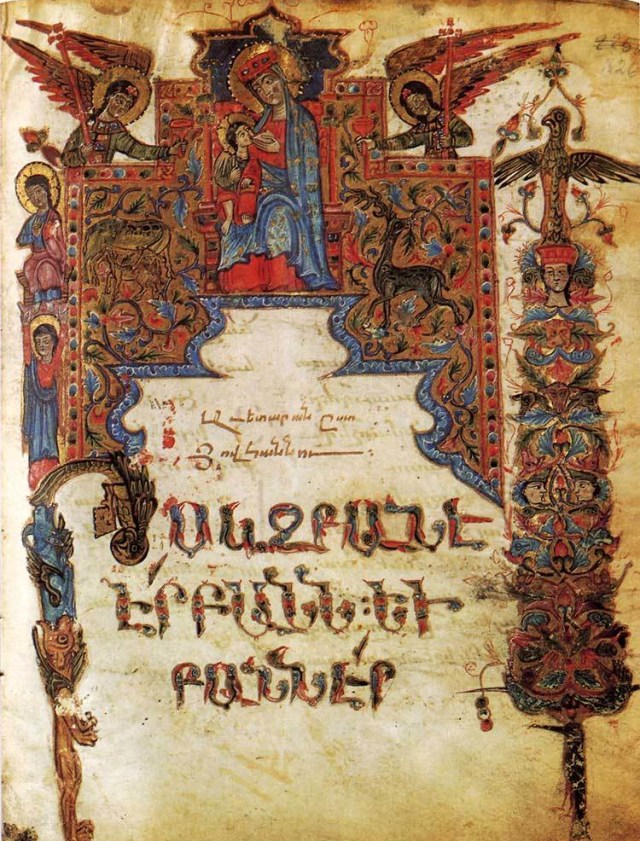 Աւետարան ըստ
Յովհաննու
Ի ՍԿԶԲԱՆԷ
ԷՐ ԲԱՆՆ։ ԵՒ
ԲԱՆՆ ԷՐ